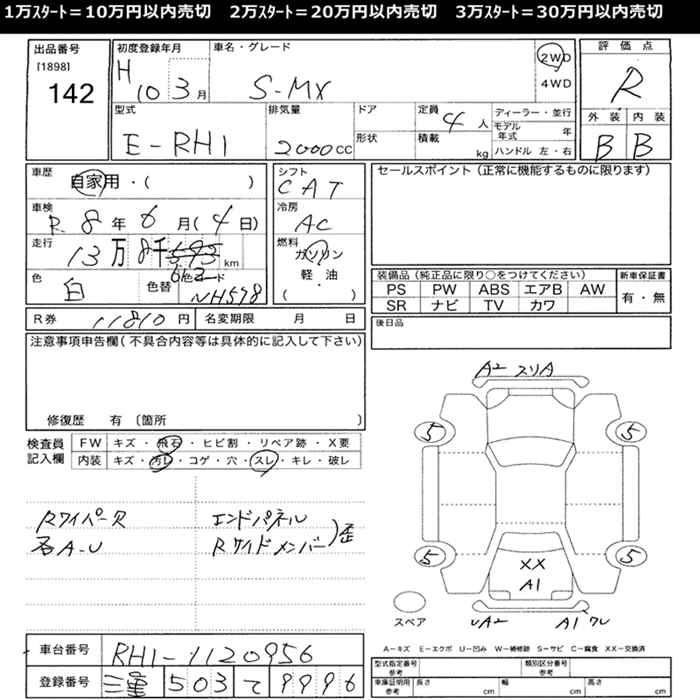 1万スタート＝10万円以内売切　2万スタート＝20万円以内売切　3万スタート＝30万円以内売切
出品番号
[1898]
142
初度登録年月
H 10 3月
車名・グレード
S-MX
2WD
4WD
評価点
R
外装 内装
B B
型式
E-RH1
排気量
2000cc
ドア
形状
定員
4人
積載
kg
ディーラー・並行
モデル年式 年
ハンドル 左・右
車歴
自家用・( )
車検
R 8年6月(4日)
走行
13万8千 613 km
色
白
色替
色コード
NH578
シフト
CAT
冷房
AC
燃料
ガソリン
軽・油
( )
セールスポイント（正常に機能するものに限ります）
装備品（純正品に限り○をつけてください）
PS PW ABS エアB AW
SR ナビ TV カワ
新車保証書
有・無
R券 11810円
名変期限 月 日
後日品
注意事項申告欄(不具合内容等は具体的に記入して下さい)
修復歴 有〔箇所 〕
検査員記入欄
FW キズ・飛石・ヒビ割・リペア跡・X要
内装 キズ・汚レ・コゲ・穴・スレ・キレ・破レ
Rワイパー欠
各A-U
エンドパネル
Rサイドメンバー)歪
A2 スリA
5 5
5 5
XX
A1
UA2 A1 ワレ
スペア
A－キズ E－エクボ U－凹み W－補修跡 S－サビ C－腐食 XX－交換済
車台番号 RH1-1120956
登録番号 三重 503 て 9996
型式指定番号
参考
類別区分番号
参考
車庫証明用
参考
長さ cm
幅 cm
高さ cm